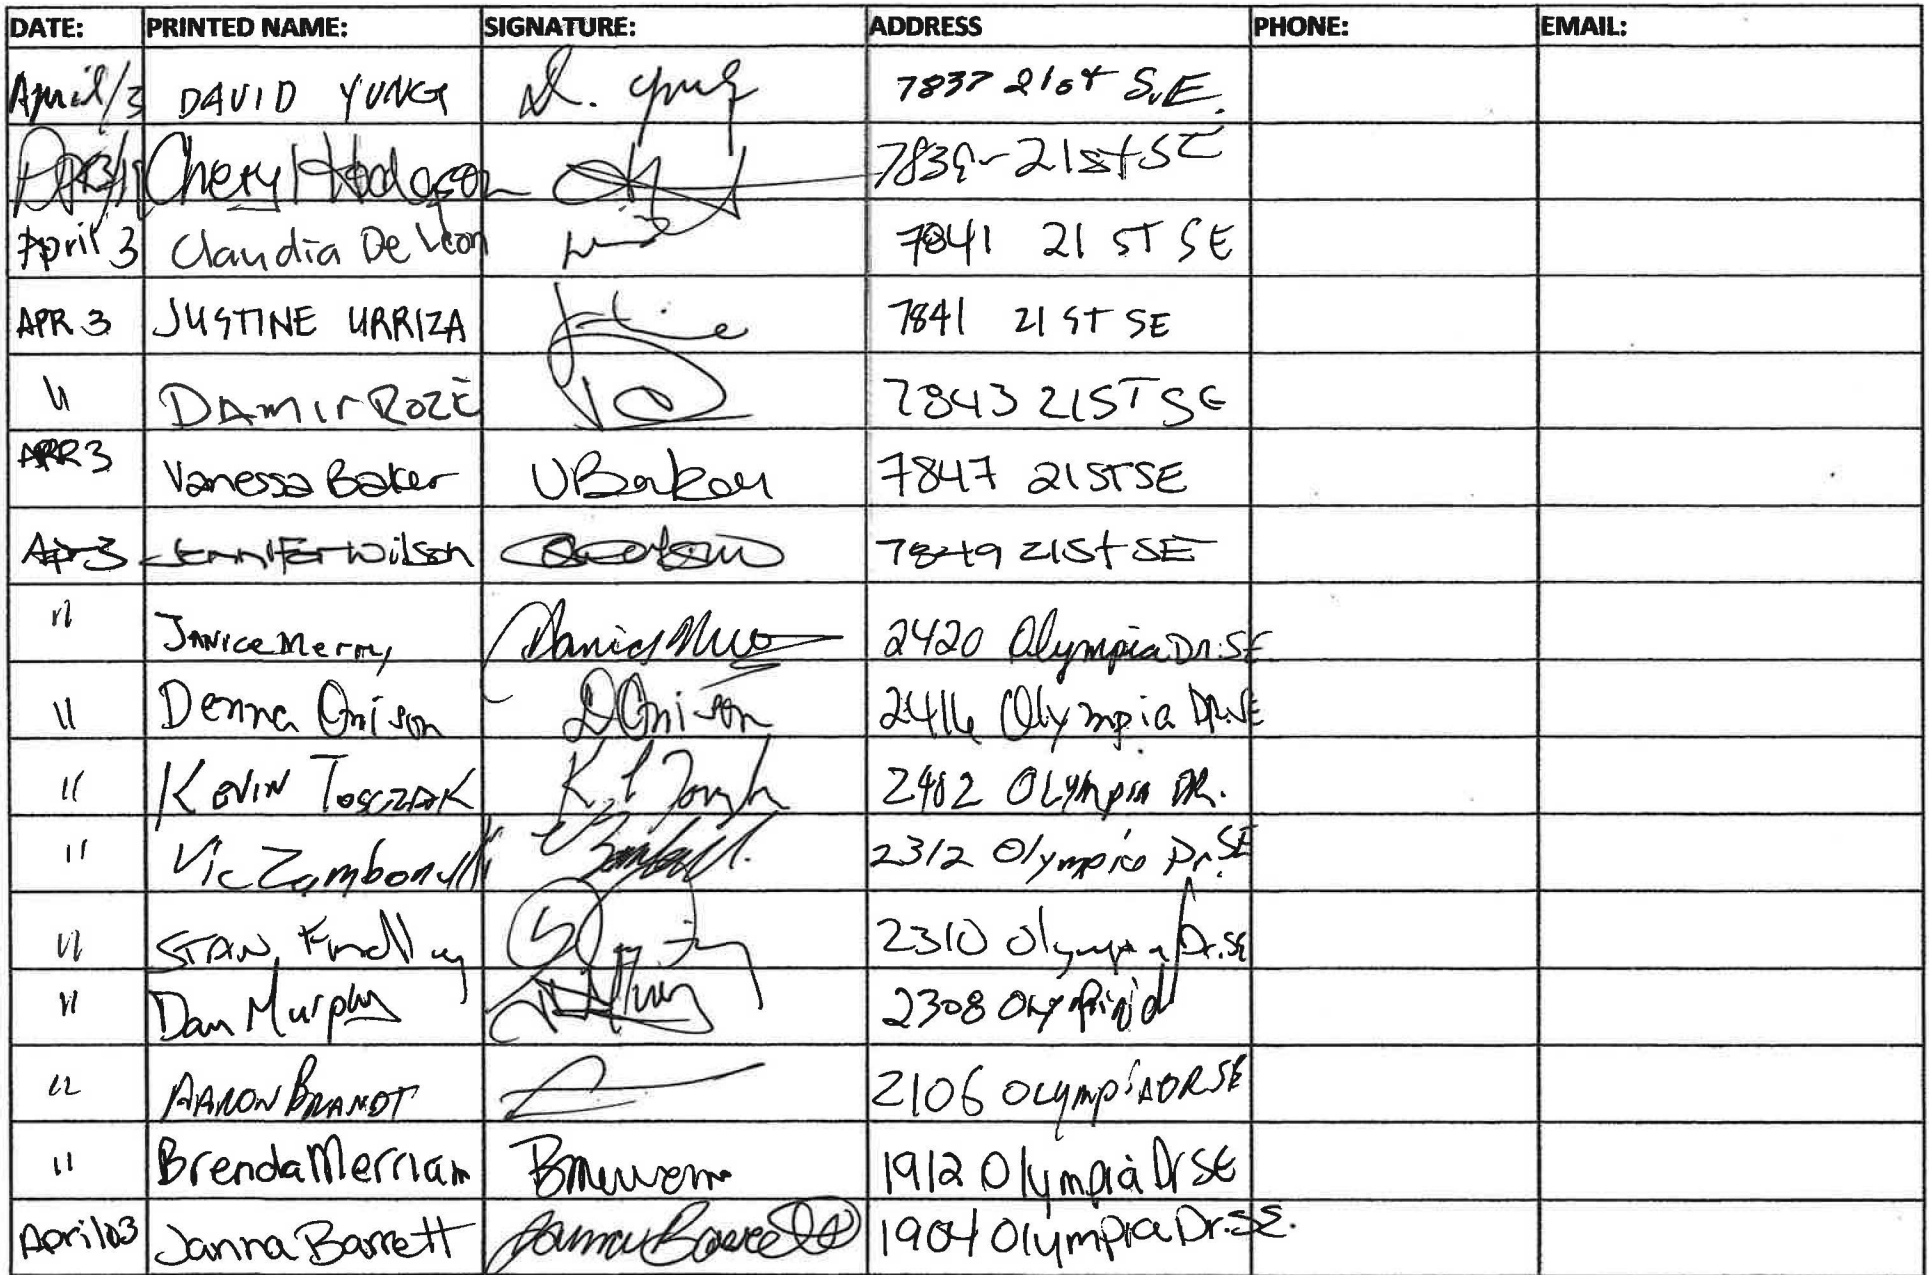 DATE: PRINTED NAME: SIGNATURE: ADDRESS PHONE: EMAIL:
April/3 DAVID YUNG D. Yung 7837 21st S.E.
Cheryl Hodgson 21st SE
April 3 Claudia De Leon 7841 21 ST SE
APR 3 JUSTINE URRIZA 7841 21 ST SE
" DAMIR ROZE 7843 21 ST SE
APR 3 Vanessa Baker VBaker 7847 21 ST SE
Apr 3 Jennifer Wilson 7849 21st SE
" Janice Merry 2420 Olympia Dr. SE
" Denna Onison D Onison 2416 Olympia DR. SE
" KEVIN TOSCZAK 2402 OLYMPIA DR.
" Vic Zambonelli 2312 Olympia Dr. SE
" STAN Findlay 2310 Olympia Dr. SE
" Dan Murphy 2308
" AARON BRANDT 2106 OLYMPIA DR SE
" Brenda Merriam 1912 Olympia Dr SE
April 03 Janna Barrett Janna Barrett 1904 Olympia Dr. SE.